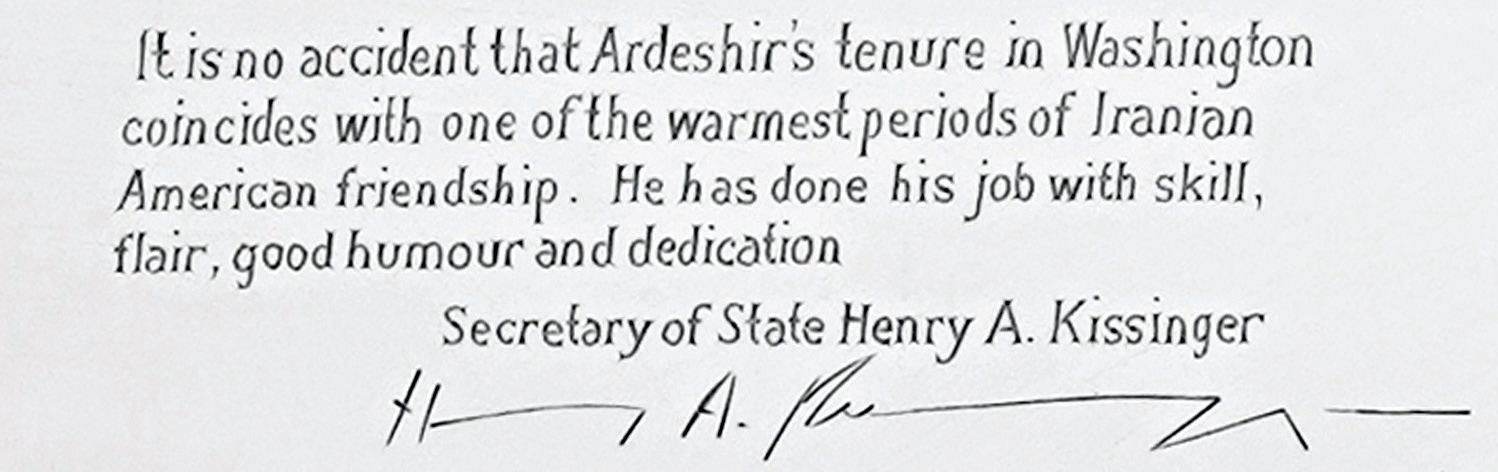 It is no accident that Ardeshir's tenure in Washington
coincides with one of the warmest periods of Iranian
American friendship. He has done his job with skill,
flair, good humour and dedication
Secretary of State Henry A. Kissinger
H A. K